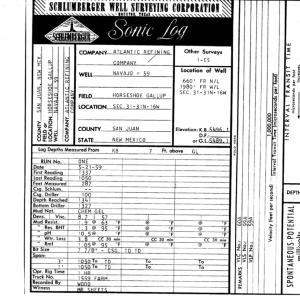 SCHLUMBERGER WELL SURVEYING CORPORATION
HOUSTON, TEXAS
Sonic Log
SCHLUMBERGER
COUNTY SAN JUAN, NEW MEX
FIELD or LOCATION HORSESHOE GALLUP
WELL NAVAJO # 59
COMPANY ATLANTIC REFINING COMPANY
COMPANY ATLANTIC REFINING
COMPANY
WELL NAVAJO # 59
FIELD HORSESHOE GALLUP
LOCATION SEC.31-31N-16W
COUNTY SAN JUAN
STATE NEW MEXICO
Other Surveys
I-ES
Location of Well
660' FR N/L
1980' FR W/L
SEC.31-31N-16W
Elevation: K.B. 5496
D.F.
or G.L. 5489
Log Depths Measured From KB 7 Ft. above GL
RUN No. ONE
Date 5-21-59
First Reading 1337
Last Reading 1050
Feet Measured 287
Csg. Schlum. --
Csg. Driller 100
Depth Reached
Bottom Driller 1327
Mud Nat. CHEM GEL
Dens. | Visc. 8.7 57
Mud Resist. @ °F @ °F @ °F @ °F
" Res. BHT @ °F @ °F @ °F @ °F
" pH @ °F @ °F @ °F @ °F
" Wtr. Loss CC 30 min CC 30 min CC 30 min
" Rmf @ °F @ °F @ °F @ °F
Bit Size 7 7/8" - CSG. TO TD
Span:
3' 1050 To TD To To
1' 1050 To TD To To
Opr. Rig Time
Truck No. 1559 FARM.
Recorded By WOOD
Witness MR SHEETS
REMARKS
INTERVAL TRANSIT TIME
1,000,000
Interval Transit Time (microseconds per foot)
Velocity (feet per second)
DEPTH
SPONTANEOUS POTENTIAL
millivolts